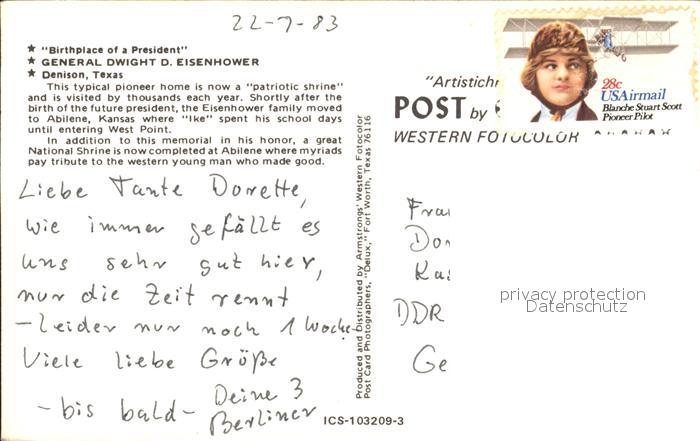 22-7-83
★ "Birthplace of a President"
★ GENERAL DWIGHT D. EISENHOWER
★ Denison, Texas
This typical pioneer home is now a "patriotic shrine"
and is visited by thousands each year. Shortly after the
birth of the future president, the Eisenhower family moved
to Abilene, Kansas where "Ike" spent his school days
until entering West Point.
In addition to this memorial in his honor, a great
National Shrine is now completed at Abilene where myriads
pay tribute to the western young man who made good.
Liebe Tante Dorette,
wie immer gefällt es
uns sehr gut hier,
nur die Zeit rennt
-leider nur noch 1 Woche-
Viele liebe Grüße
-bis bald- Deine 3
Berliner
ICS-103209-3
Produced and Distributed by Armstrongs' Western Fotocolor
Post Card Photographers, "Delux," Fort Worth, Texas 76116
28c
USAirmail
Blanche Stuart Scott
Pioneer Pilot
"Artistichr
POST by
WESTERN FOTOCOLOR
Frau
Dor
Ka
DDR
Ge
privacy protection
Datenschutz